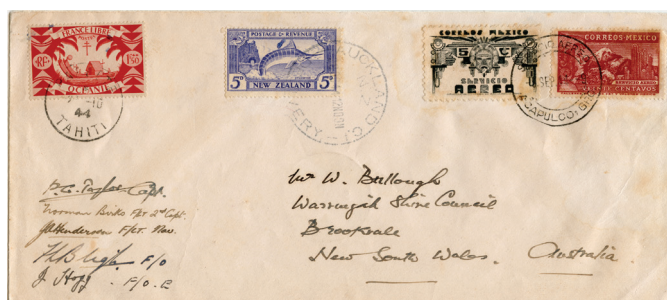 FRANCE LIBRE
RF
OCEANIE
44
TAHITI
POSTAGE & REVENUE
5D 5D
NEW ZEALAND
AUCKLAND
CORREOS MEXICO
5 C
SERVICIO
AEREA
CORREOS·MEXICO
SERVICIO AEREO
VEINTE CENTAVOS
SEP
ACAPULCO, GRO
P. G. Taylor Capt.
Norman Birks F/Lt 2nd Capt.
Henderson F/Lt. Nav.
F/O
J. Hogg . F/O. E
Mr W. Bullough
Warringah Shire Council
Brookvale
New South Wales. Australia.